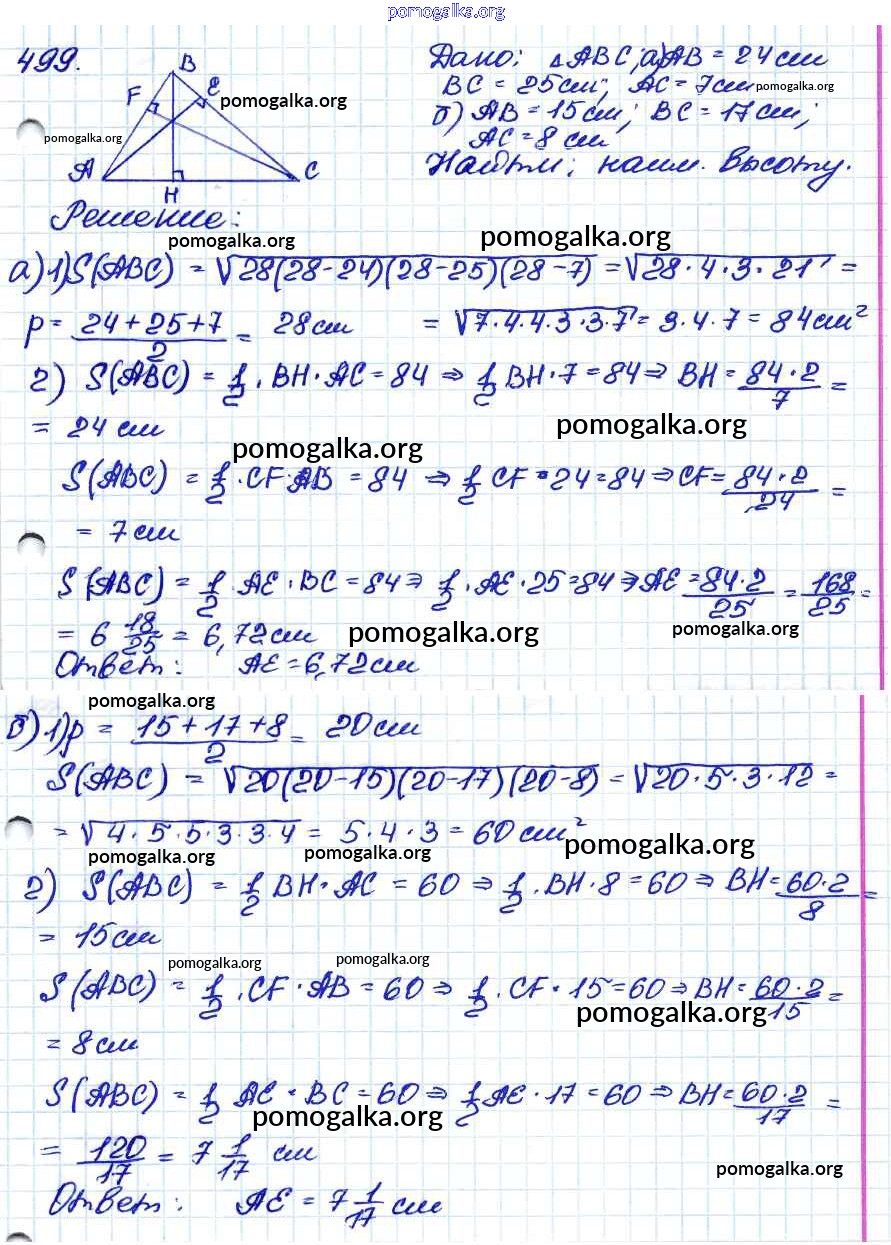 pomogalka.org
499.
B
E
F
A
H
C
pomogalka.org
pomogalka.org
Дано: △ABC; а) AB = 24 см
BC = 25 см; AC = 7 см
pomogalka.org
б) AB = 15 см; BC = 17 см;
AC = 8 см
Найти: наим. высоту.
Решение:
pomogalka.org pomogalka.org
а) 1) S(ABC) = √28(28-24)(28-25)(28-7) = √28·4·3·21 =
p = (24+25+7)/2 = 28 см = √7·4·4·3·3·7 = 3·4·7 = 84 см²
2) S(ABC) = 1/2 · BH · AC = 84 ⇒ 1/2 BH · 7 = 84 ⇒ BH = (84·2)/7 =
= 24 см
pomogalka.org pomogalka.org
S(ABC) = 1/2 · CF · AB = 84 ⇒ 1/2 CF · 24 = 84 ⇒ CF = (84·2)/24 =
= 7 см
S(ABC) = 1/2 AE · BC = 84 ⇒ 1/2 · AE · 25 = 84 ⇒ AE = (84·2)/25 = 168/25 =
= 6 18/25 = 6,72 см
pomogalka.org pomogalka.org
Ответ: AE = 6,72 см
pomogalka.org
б) 1) p = (15+17+8)/2 = 20 см
S(ABC) = √20(20-15)(20-17)(20-8) = √20·5·3·12 =
= √4·5·5·3·3·4 = 5·4·3 = 60 см²
pomogalka.org pomogalka.org pomogalka.org
2) S(ABC) = 1/2 BH · AC = 60 ⇒ 1/2 · BH · 8 = 60 ⇒ BH = (60·2)/8 =
= 15 см
pomogalka.org pomogalka.org
S(ABC) = 1/2 · CF · AB = 60 ⇒ 1/2 · CF · 15 = 60 ⇒ BH = (60·2)/15 =
pomogalka.org
= 8 см
S(ABC) = 1/2 AE · BC = 60 ⇒ 1/2 AE · 17 = 60 ⇒ BH = (60·2)/17 =
pomogalka.org
= 120/17 = 7 1/17 см
pomogalka.org
Ответ: AE = 7 1/17 см